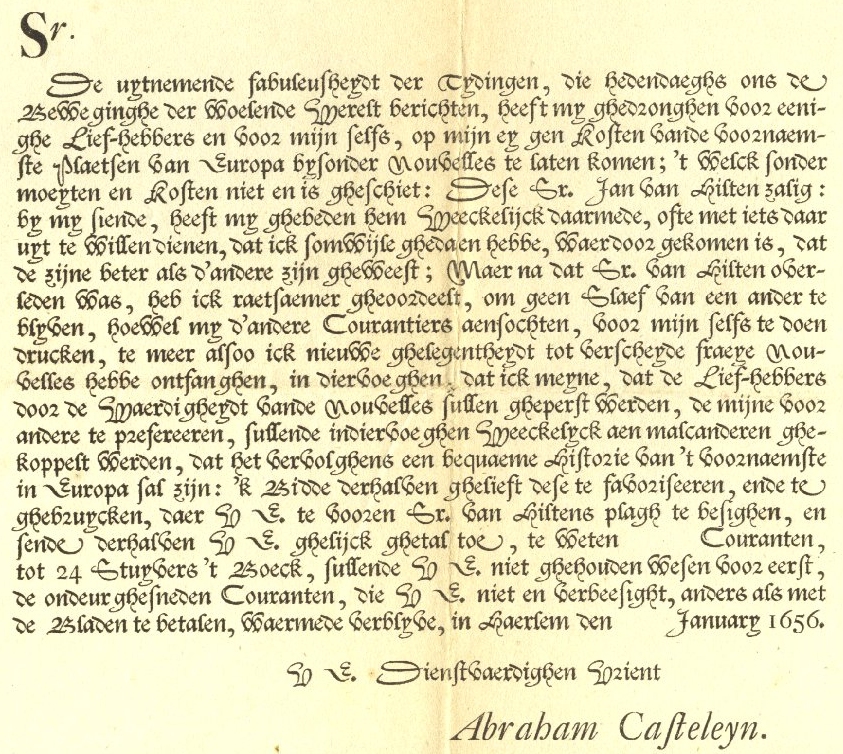 Sr.
De uytnemende fabuleusheydt der Tydingen, die hedendaeghs ons de
Beweginghe der woelende Werelt berichten, heeft my ghedronghen voor eeni-
ghe Lief-hebbers en voor mijn selfs, op mijn eygen Kosten vande voornaem-
ste Plaetsen van Europa bysonder Nouvelles te laten komen; 't welck sonder
moeyten en Kosten niet en is gheschiet: Dese Sr. Jan van Hilten zalig:
by my siende, heeft my ghebeden hem Weeckelijck daarmede, ofte met iets daar
uyt te willen dienen, dat ick somwijle ghedaen hebbe, waerdoor gekomen is, dat
de zijne beter als d'andere zijn gheweest; Maer na dat Sr. van Hilten over-
leden was, heb ick raetsaemer gheoordeelt, om geen Slaef van een ander te
blyven, hoewel my d'andere Courantiers aensochten, voor mijn selfs te doen
drucken, te meer alsoo ick nieuwe ghelegentheydt tot verscheyde fraeye Nou-
velles hebbe ontfanghen, in diervoeghen dat ick meyne, dat de Lief-hebbers
door de Waerdigheydt vande Nouvelles sullen gheperst werden, de mijne voor
andere te prefereeren, sullende indiervoeghen Weeckelyck aen malcanderen ghe-
koppelt werden, dat het vervolghens een bequaeme Historie van 't voornaemste
in Europa sal zijn: 'k Bidde derhalven ghelieft dese te favoriseeren, ende te
ghebruycken, daer V E. te vooren Sr. van Hiltens plagh te besighen, en
sende derhalven V E. ghelijck ghetal toe, te weten Couranten,
tot 24 Stuyvers 't Boeck, sullende V E. niet ghehouden wesen voor eerst,
de ondeurghesneden Couranten, die V E. niet en verbeesight, anders als met
de Bladen te betalen, waermede verblyve, in Haerlem den January 1656.
V E. Dienstvaerdighen Vrient
Abraham Casteleyn.